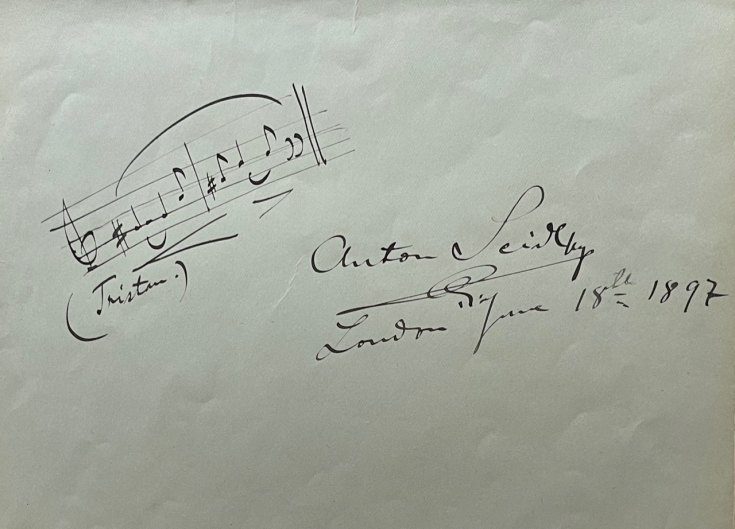 (Tristan.)
Anton Seidl
London June 18th 1897